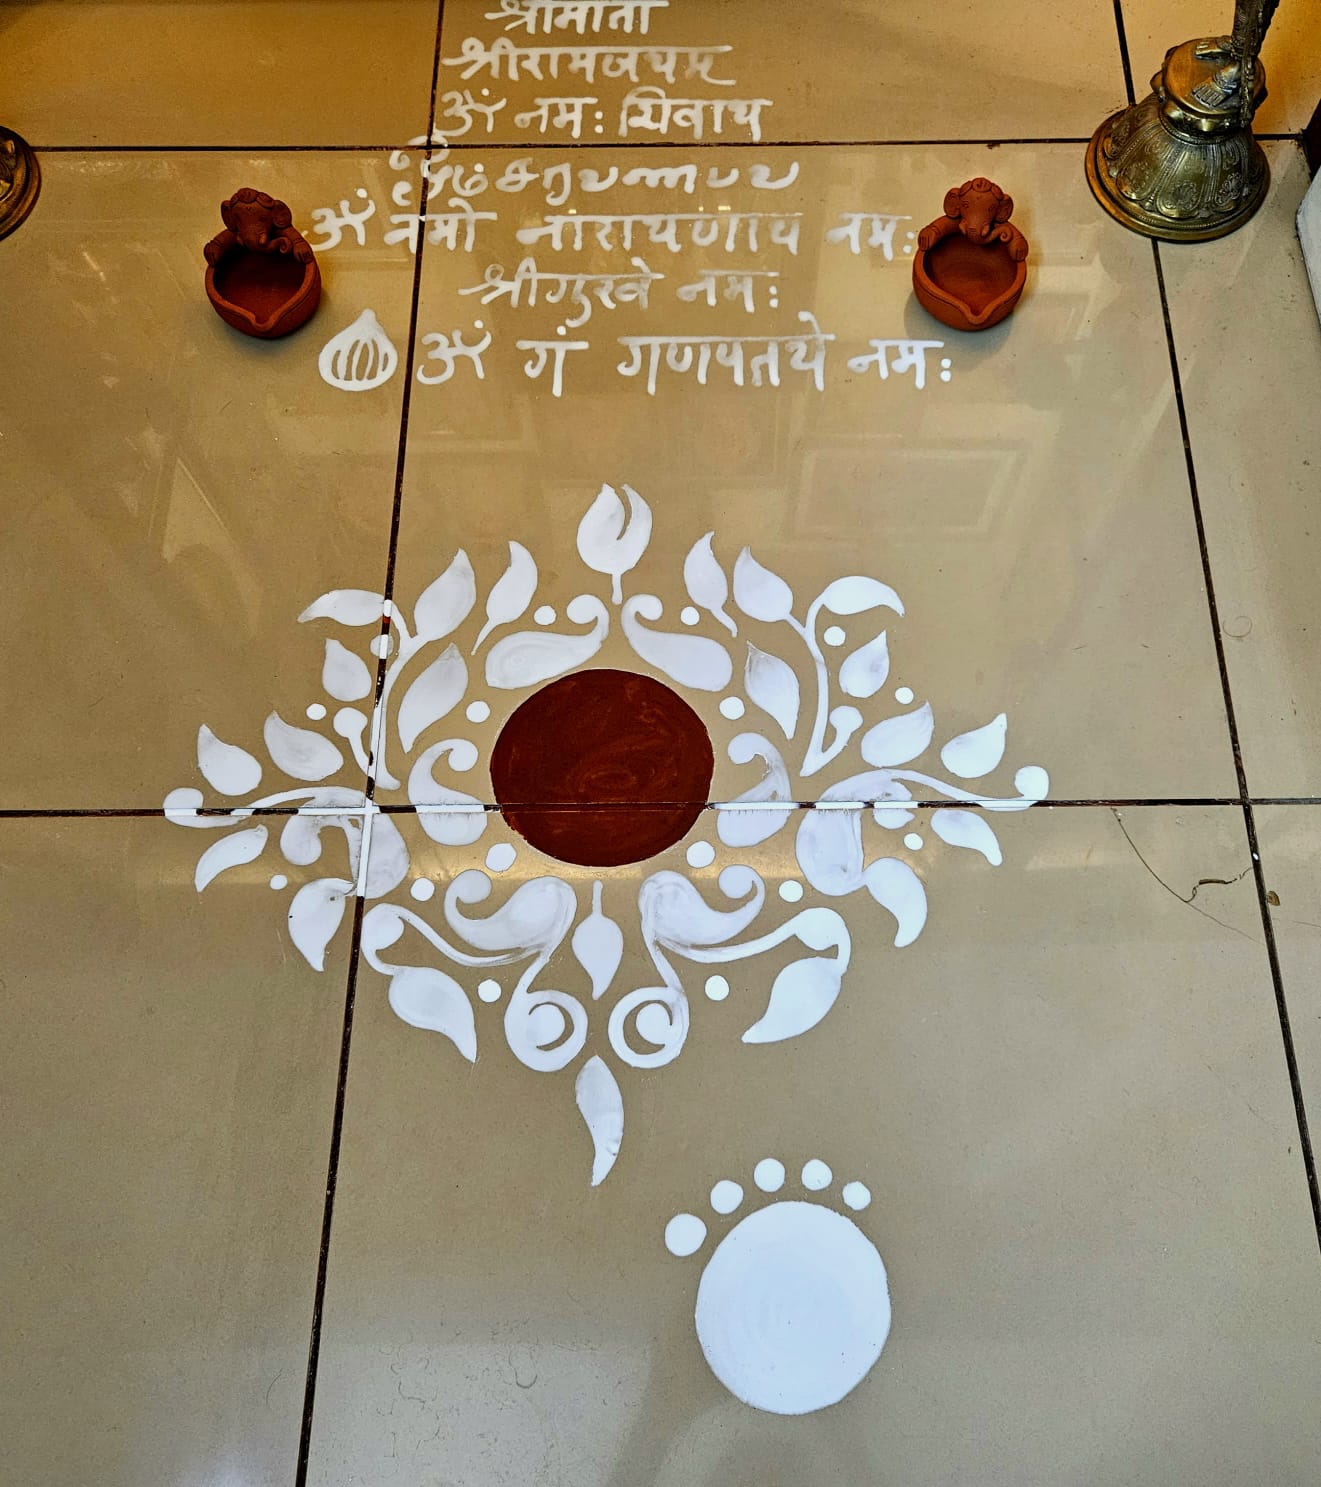 श्रीमाता
श्रीरामजयम्
ॐ नमः शिवाय
ஓம் சரவணபவ
ॐ नमो नारायणाय नमः
श्रीगुरवे नमः
ॐ गं गणपतये नमः